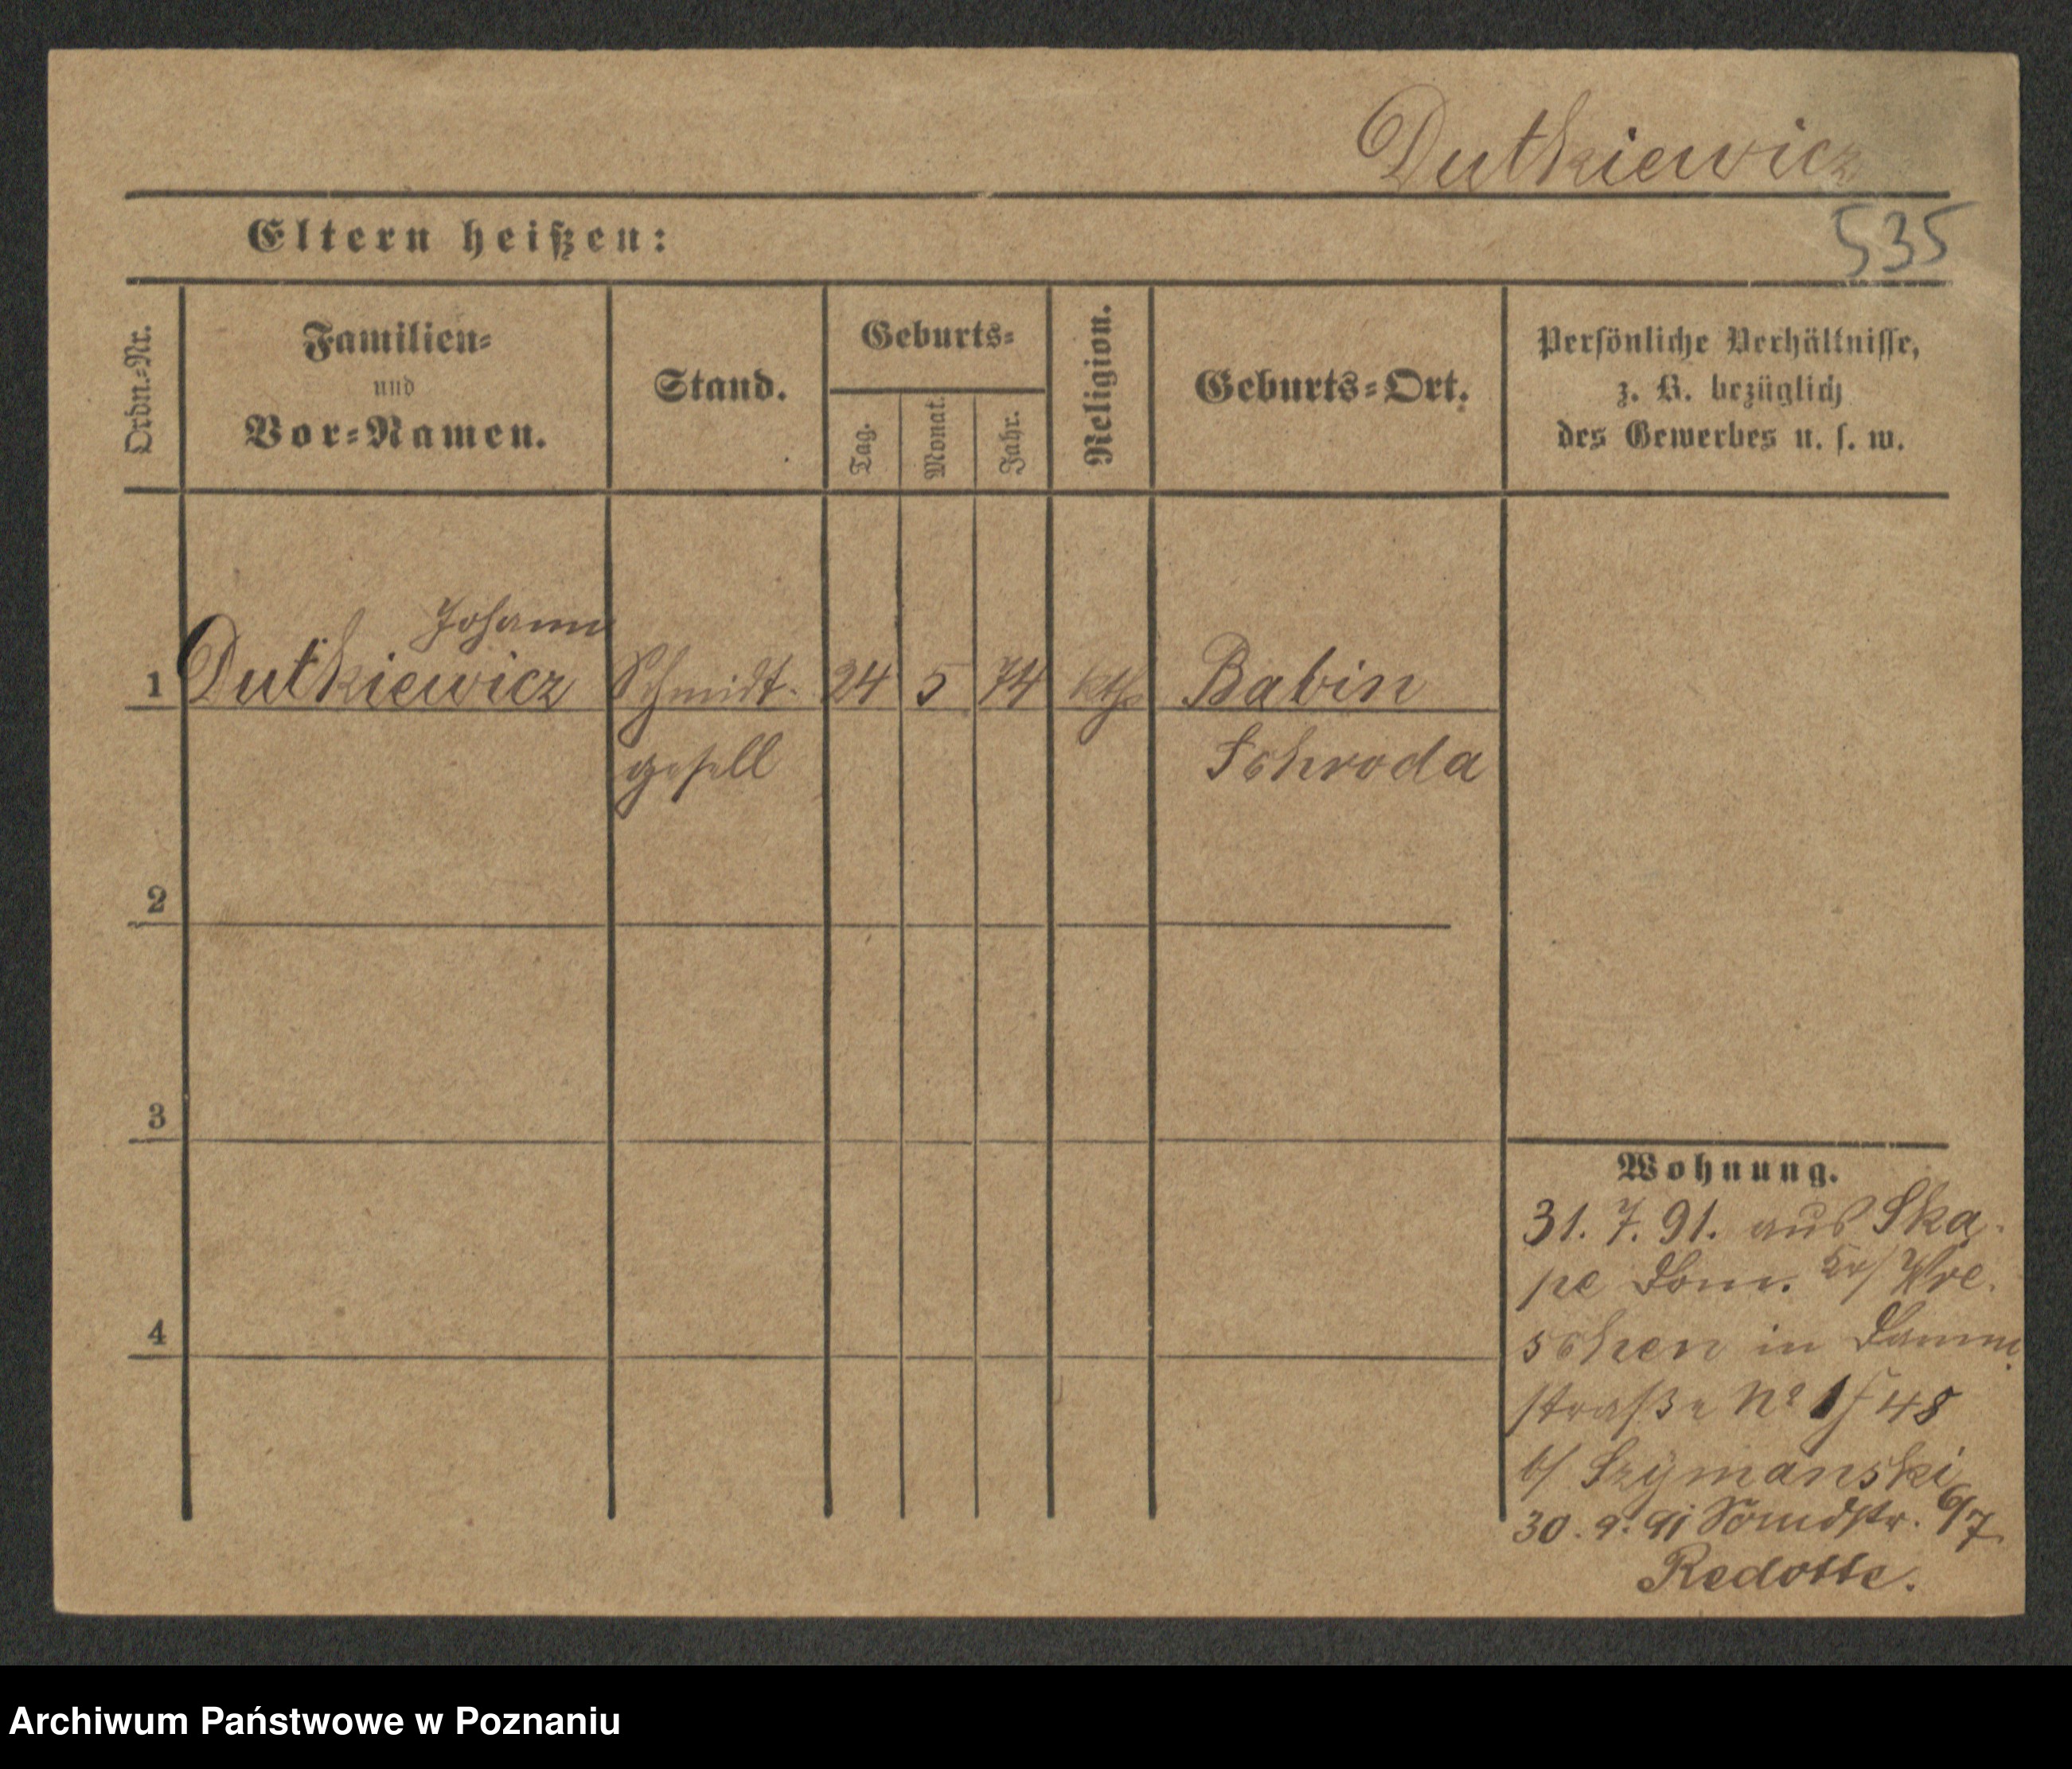 Dutkiewicz
535
Eltern heißen:
Ordn.-Nr.
Familien-
und
Vor-Namen.
Stand.
Geburts-
Tag.
Monat.
Jahr.
Religion.
Geburts-Ort.
Persönliche Verhältnisse,
z. B. bezüglich
des Gewerbes u. s. w.
Johann
1 Dutkiewicz Schmidt- 24 5 74 kth. Babin
gesell Schroda
2
3
4
Wohnung.
31. 7. 91. aus Ska-
pe Dom. Kr/ Wre-
schen in Damm
straße No 1 48
b/ Szymanski
30. 9. 91 6/7
Redotte.
Archiwum Państwowe w Poznaniu